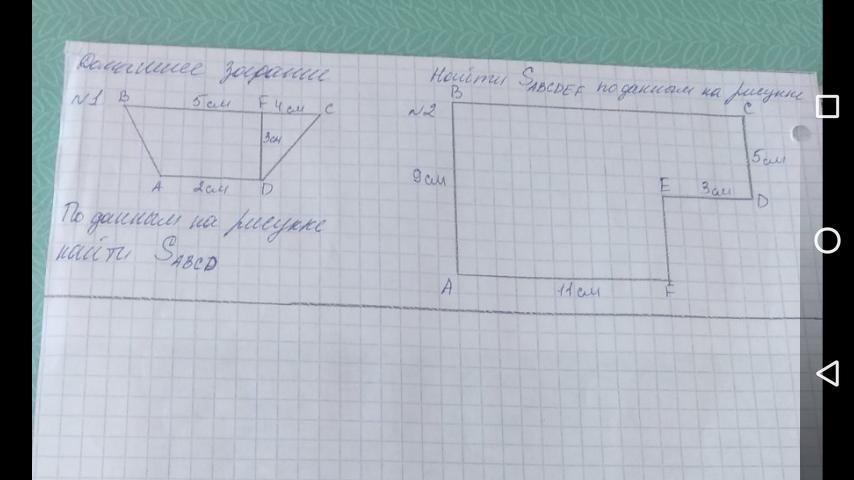 Домашнее задание
N1 B 5см F 4см C
3см
A 2см D
По данным на рисунке
найти SABCD
Найти SABCDEF по данным на рисунке
N2 B C
9см 5см
E 3см D
A 11см F